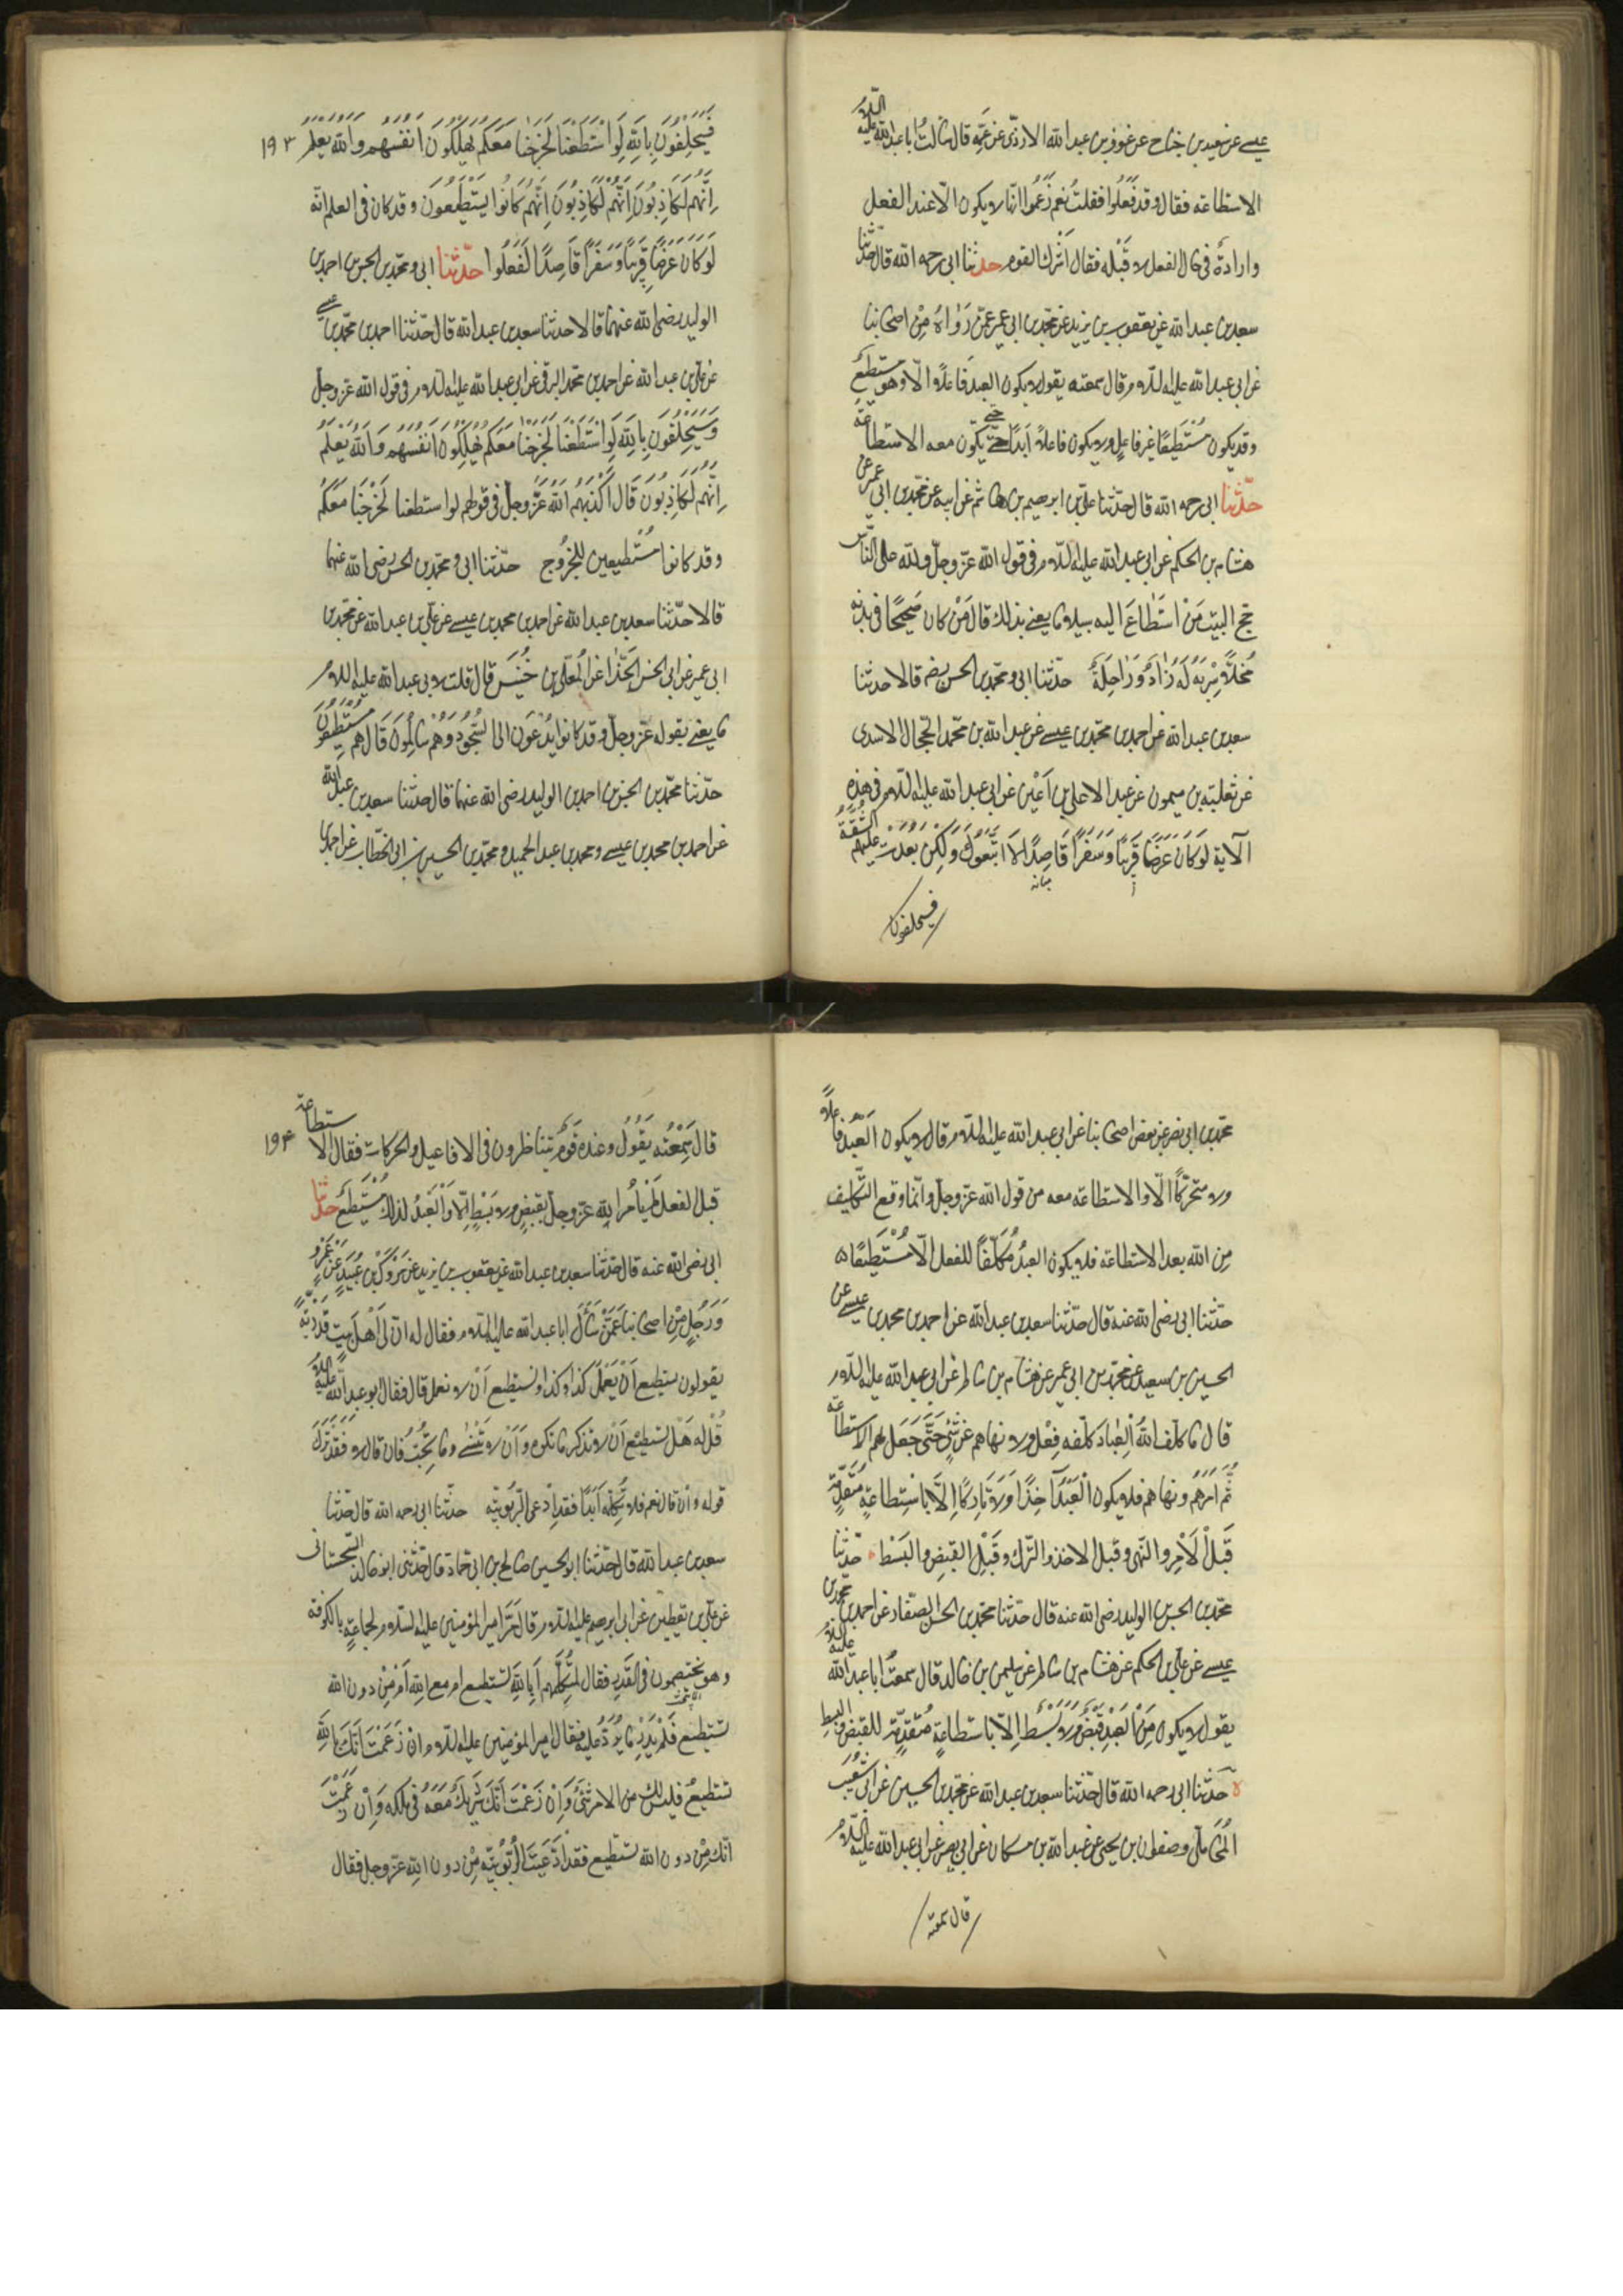 عيسى عن سعيد بن جناح عن عوف بن عبد الله الازدى عن عمه قال سالت ابا عبد الله عليه السلام
الاستطاعه فقال وقد فعلوا فقلت نعم زعموا انها لا يكون الا عند الفعل
وارادة فى حال الفعل لا قبله فقال اشرك القوم حدثنا ابى رحمه الله قال حدثنا
سعد بن عبد الله عن يعقوب بن يزيد عن محمد بن ابى عمير عمن رواه من اصحابنا
عن ابى عبد الله عليه السلام قال سمعته يقول لا يكون العبد فاعلا الا وهو مستطيع
وقد يكون مستطيعا غير فاعل ولا يكون فاعلا ابدا حتى يكون معه الاستطاعة
حدثنا ابى رحمه الله قال حدثنا على بن ابرهيم بن هاشم عن ابيه عن محمد بن ابى عمير عن
هشام بن الحكم عن ابى عبد الله عليه السلام فى قول الله عز وجل ولله على الناس
حج البيت من استطاع اليه سبيلا ما يعنى بذلك قال من كان صحيحا فى بدنه
مخلا سربه له زاد وراحلة حدثنا ابى ومحمد بن الحسن رضه قالا حدثنا
سعد بن عبد الله عن احمد بن محمد بن عيسى عن عبد الله بن محمد الحجال الاسدى
عن ثعلبة بن ميمون عن عبد الاعلى بن اعين عن ابى عبد الله عليه السلام فى هذه
الآية لو كان عرضا قريبا وسفرا قاصدا لا اتبعوك ولكن بعدت عليهم الشقة
فسيحلفون
فسيحلفون بالله لو استطعنا لخرجنا معكم يهلكون انفسهم والله يعلم ١٩٣
انهم لكاذبون انهم لكاذبون انهم كانوا يستطيعون وقد كان فى العلم انه
لو كان عرضا قريبا وسفرا قاصدا لفعلوا حدثنا ابى ومحمد بن الحسن بن احمد بن
الوليد رضى الله عنهما قالا حدثنا سعد بن عبد الله قال حدثنا احمد بن محمد بن عيسى
عن على بن عبد الله عن احمد بن محمد البرقى عن ابى عبد الله عليه السلام فى قول الله عز وجل
وسيحلفون بالله لو استطعنا لخرجنا معكم يهلكون انفسهم والله يعلم
انهم لكاذبون قال اكذبهم الله عز وجل فى قولهم لو استطعنا لخرجنا معكم
وقد كانوا مستطيعين للخروج حدثنا ابى ومحمد بن الحسن رضى الله عنهما
قالا حدثنا سعد بن عبد الله عن احمد بن محمد بن عيسى عن على بن عبد الله عن محمد بن
ابى عمير عن ابى الحسن الحذا عن المعلى بن خنيس قال قلت لابى عبد الله عليه السلام
ما يعنى بقوله عز وجل وقد كانوا يدعون الى السجود وهم سالمون قال هم مستطيعون
حدثنا محمد بن الحسن بن احمد بن الوليد رضى الله عنهما قال حدثنا سعد بن عبد الله
عن احمد بن محمد بن عيسى ومحمد بن عبد الحميد ومحمد بن الحسين بن ابى الخطاب عن احمد بن
محمد بن ابى نصر عن بعض اصحابنا عن ابى عبد الله عليه السلام قال لا يكون العبد فاعلا
ولا متحركا الا والاستطاعه معه من قول الله عز وجل وانما وقع التكليف
من الله بعد الاستطاعة فلا يكون العبد مكلفا للفعل الا مستطيعا
حدثنا ابى رضى الله عنه قال حدثنا سعد بن عبد الله عن احمد بن محمد بن عيسى عن
الحسين بن سعيد عن محمد بن ابى عمير عن هشام بن سالم عن ابى عبد الله عليه السلام
قال ما كلف الله العباد كلفه فعل ولا نهاهم عن شئ حتى جعل لهم الاستطاعة
ثم امرهم ونهاهم فلا يكون العبد آخذا ولا تاركا الا باستطاعة متقدمة
قبل الامر والنهى وقبل الاخذ والترك وقبل القبض والبسط حدثنا
محمد بن الحسن بن الوليد رضى الله عنه قال حدثنا محمد بن الحسن الصفار عن احمد بن محمد بن
عيسى عن على بن الحكم عن هشام بن سالم عن سليمن بن خالد قال سمعت ابا عبد الله عليه السلام
يقول لا يكون من العبد قبض ولا بسط الا باستطاعة متقدمة للقبض والبسط
حدثنا ابى رحمه الله قال حدثنا سعد بن عبد الله عن محمد بن الحسين عن ابى شعيب
المحاملى وصفوان بن يحيى عن عبد الله بن مسكان عن ابى بصير عن ابى عبد الله عليه السلام
قال سمعته
قال سمعته يقول وعنده قوم يتناظرون فى الافاعيل والحركات فقال الاستطاعة ١٩٤
قبل الفعل لم يامر الله عز وجل بقبض ولا بسط الا والعبد لذلك مستطيع حدثنا
ابى رضى الله عنه قال حدثنا سعد بن عبد الله عن يعقوب بن يزيد عن مروك بن عبيد عن عمرو
ورجل من اصحابنا عمن سأل ابا عبد الله عليه السلام فقال له ان لى اهل بيت قدرية
يقولون نستطيع ان نعمل كذا وكذا ونستطيع ان لا نعمل قال فقال ابو عبد الله عليه السلام
قل له هل تستطيع ان لا تذكر ما تكره وان لا تنسى وما تحب فان قال لا فقد ترك
قوله وان قال نعم فلا تكلمه ابدا فقد ادعى الربوبية حدثنا ابى رحمه الله قال حدثنا
سعد بن عبد الله قال حدثنا ابو الحسين صالح بن ابى حماد قال حدثنى ابو خالد السجستانى
عن على بن يقطين عن ابى ابرهيم عليه السلام قال مر امير المؤمنين عليه السلام لجماعة بالكوفة
وهم يختصمون فى القدر فقال لمتكلمهم ابالله تستطيع ام مع الله ام من دون الله
تستطيع فلم يدر ما يرد عليه فقال امير المؤمنين عليه السلام ان زعمت انك بالله
تستطيع فليس لك من الامر شئ وان زعمت انك شريك معه فى ملكه وان زعمت
انك من دون الله تستطيع فقد ادعيت الربوبية من دون الله عز وجل فقال